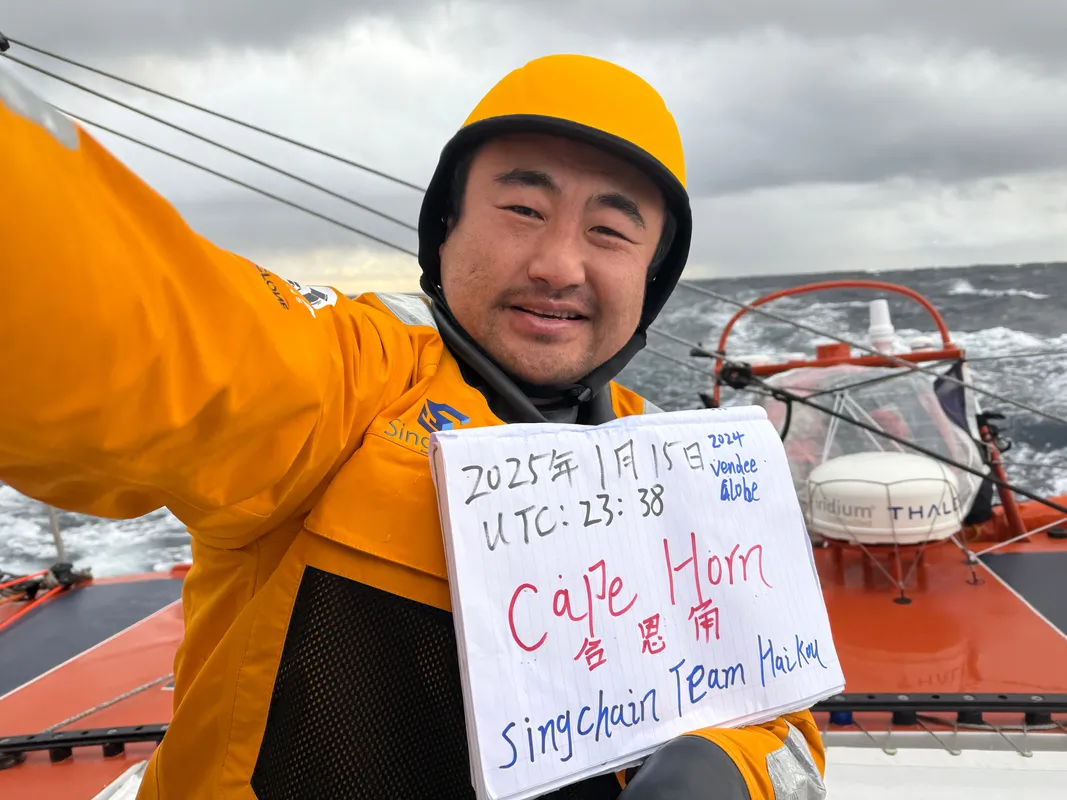 2025年1月15日
2024
Vendee
Globe
UTC: 23:38
Cape Horn
合恩角
Singchain Team Haikou
Sing
iridium THAL